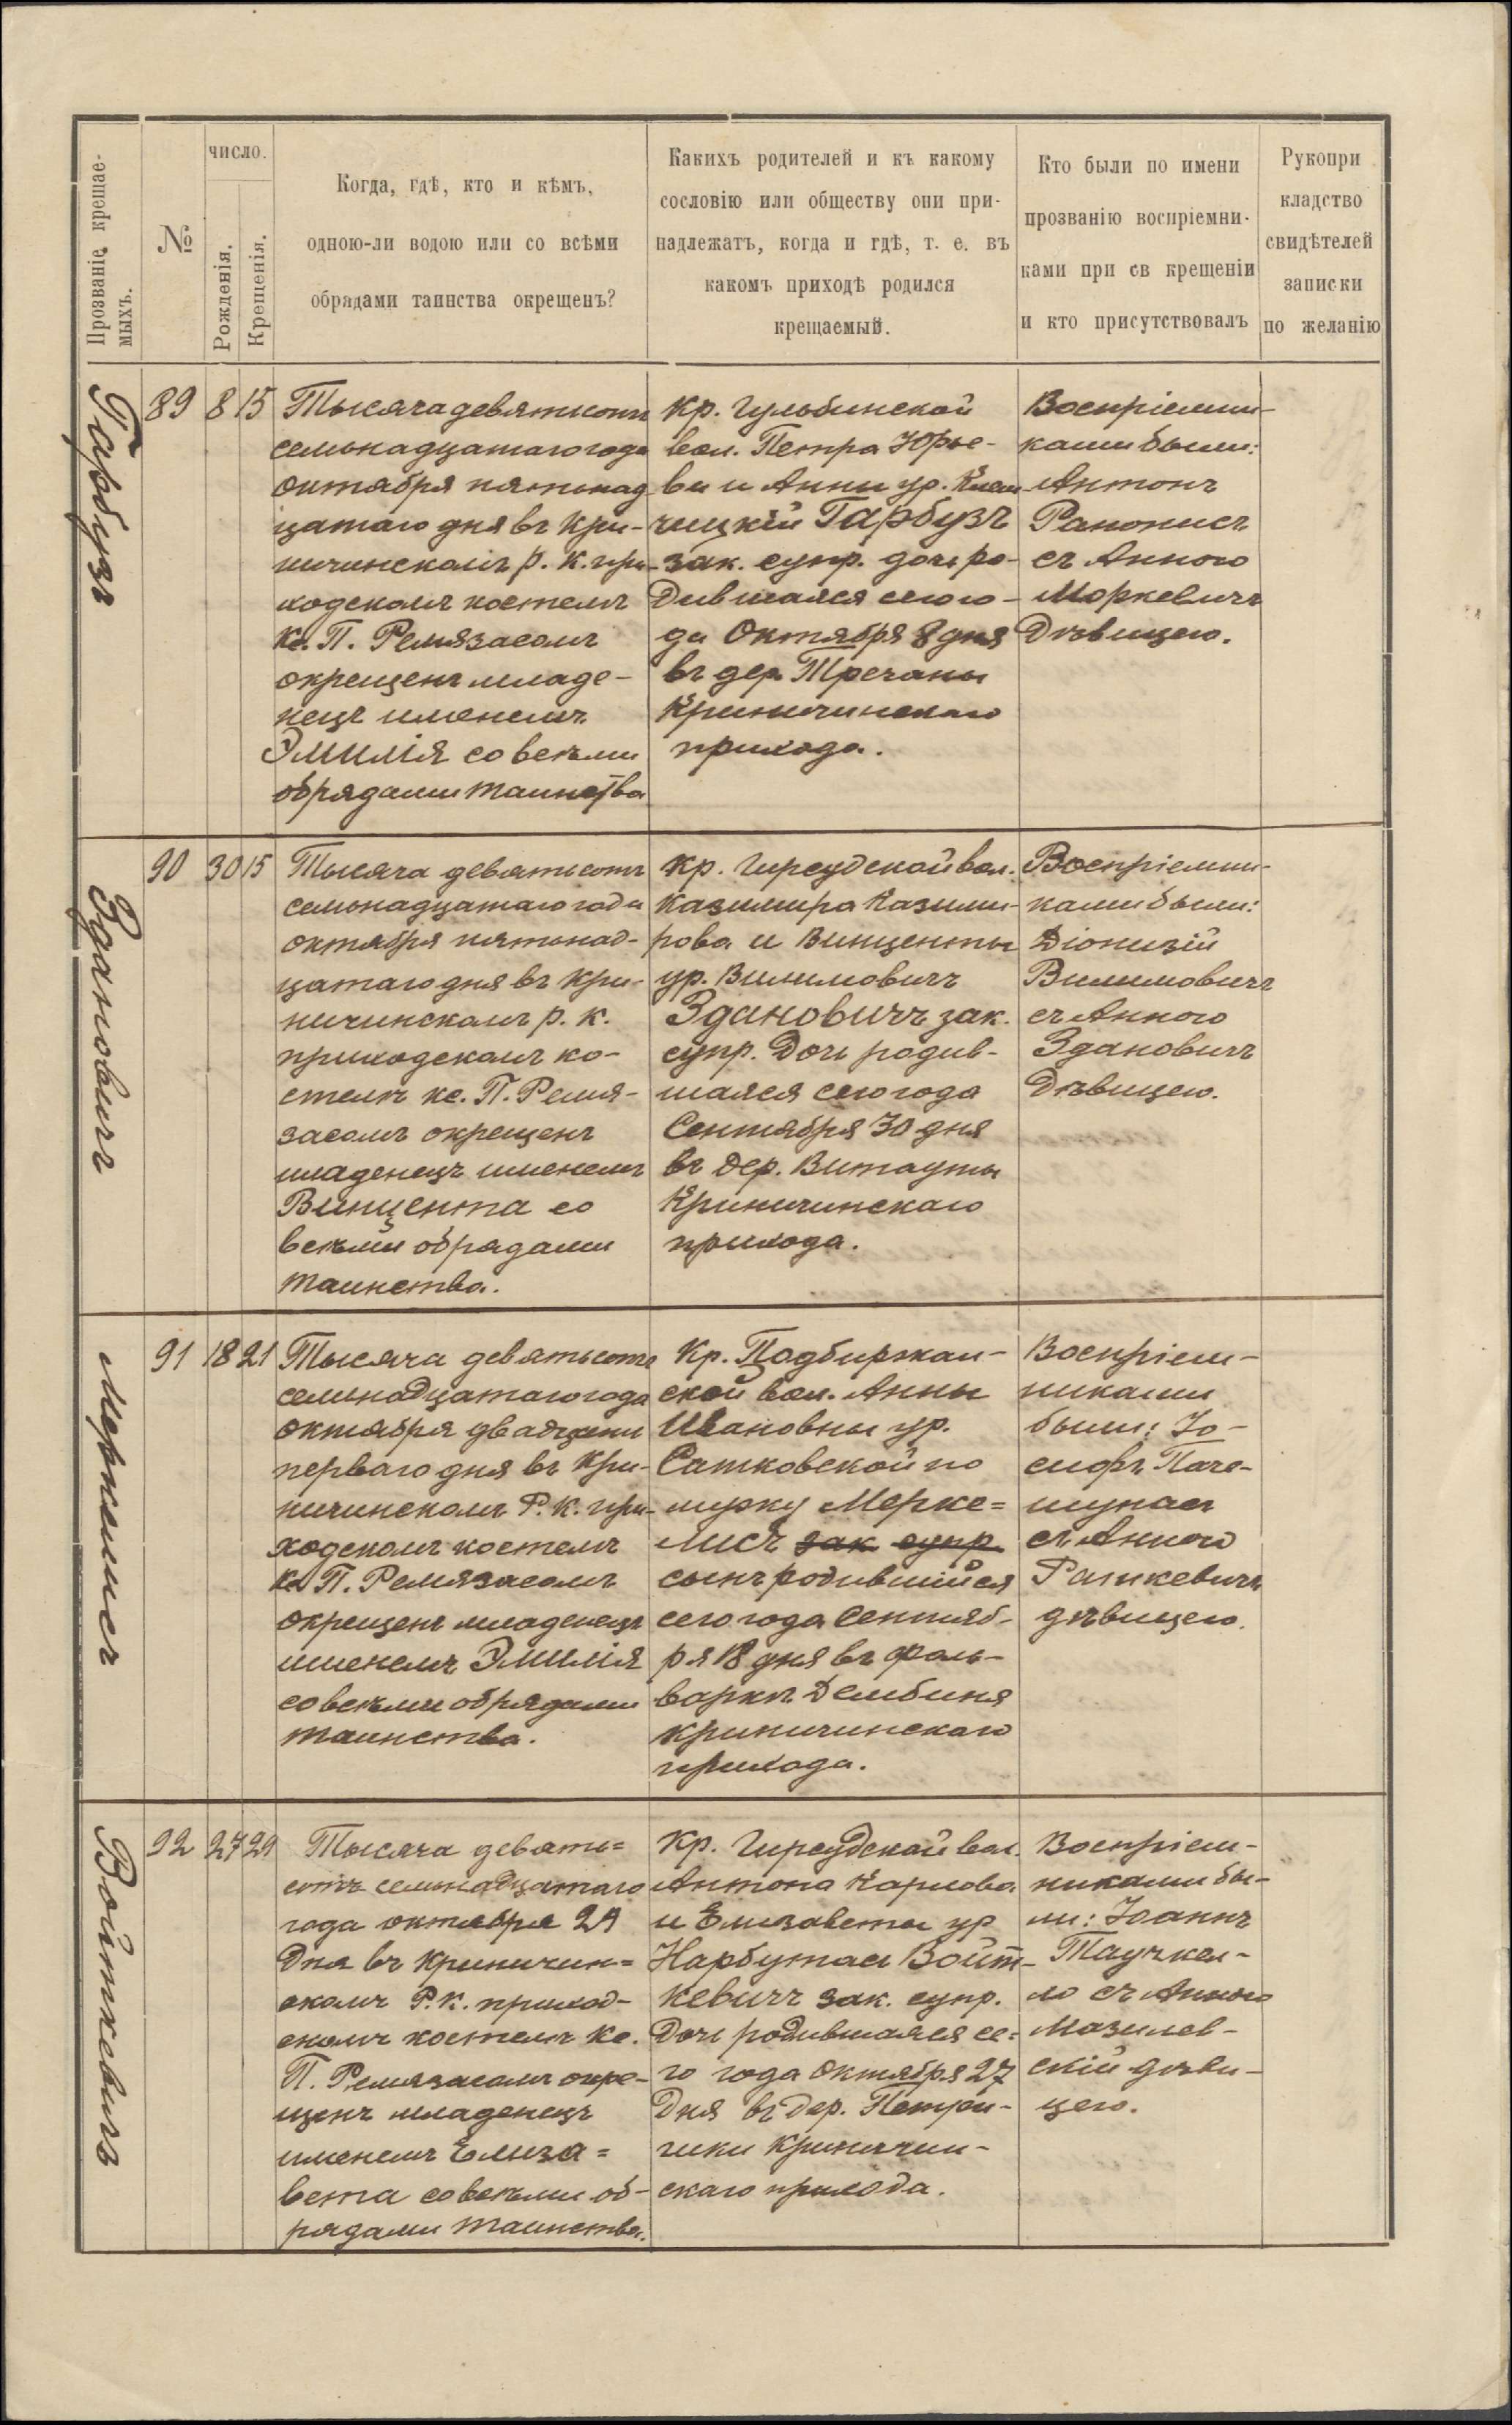 Прозваніе крещае-
мыхъ.
№
число.
Рожденія.
Крещенія.
Когда, гдѣ, кто и кѣмъ,
одною-ли водою или со всѣми
обрядами таинства окрещенъ?
Какихъ родителей и къ какому
сословію или обществу они при-
надлежатъ, когда и гдѣ, т. е. въ
какомъ приходѣ родился
крещаемый.
Кто были по имени
прозванію воспріемни-
ками при св крещеніи
и кто присутствовалъ
Рукопри
кладство
свидѣтелей
записки
по желанію
Гарбузъ
89 8 15
Тысяча девятьсотъ
семьнадцатаго года
октября пятьнад
цатаго дня въ Кри-
ничинскомъ р. к. при-
ходскомъ костелѣ
Кс. П. Ремязасомъ
окрещенъ младе-
нецъ именемъ
Эмилія со всѣми
обрядами таинства
Кр. Гульбинской
вол. Петра Юрье-
ва и Анны ур.
чицкій Гарбузъ
зак. супр. дочь ро-
дившаяся сего го-
да Октября 8 дня
въ дер. Тречаны
Криничинскаго
прихода.
Воспріемни-
ками были:
Антонъ
Рапонисъ
съ Анною
Моркевичъ
Дѣвицею.
Здановичъ
90 30 15
Тысяча девятьсотъ
семьнадцатаго года
октября пятьнад-
цатаго дня въ Кри-
ничинскомъ р. к.
приходскомъ ко-
стелѣ кс. П. Ремя-
засомъ окрещенъ
младенецъ именемъ
Винцента со
всѣми обрядами
таинства.
Кр. Гирсудской вол.
Казимира Казими-
рова и Винценты
ур. Вилимовичъ
Здановичъ зак.
супр. Дочь родив-
шаяся сего года
Сентября 30 дня
въ Дер. Витауты
Криничинскаго
прихода.
Воспріемни-
ками были:
Діонизій
Вилимовичъ
съ Анною
Здановичъ
Дѣвицею.
Меркелисъ
91 18 21
Тысяча девятьсотъ
семьнадцатаго года
октября двадцать
перваго дня въ Кри-
ничинскомъ Р. К. при-
ходскомъ костелѣ
Кс П. Ремязасомъ
окрещенъ младенецъ
именемъ Эмилія
со всѣми обрядами
таинства.
Кр. Подбиржан-
ской вол. Анны
Ивановны ур.
Сатковской по
мужу Мерке=
лисъ зак супр
сынъ родившійся
сего года Сентяб-
ря 18 дня въ фоль-
варкѣ Дембиня
Криничинскаго
прихода.
Воспріем-
никами
были: Іо-
сифъ Паче-
шунас
съ Анною
Рашкевичъ
дѣвицею.
Войткевичъ
92 27 29
Тысяча девять=
сотъ семьнадцатаго
года октября 29
Дня въ Криничин=
скомъ Р. К. приход-
скомъ костелѣ Кс.
П. Ремязасомъ окре-
щенъ младенецъ
именемъ Елиза=
вета со всѣми об-
рядами таинства.
Кр. Гирсудской вол.
Антона Карлова
и Елизаветы ур
Нарбутас Войт-
кевичъ зак. супр.
Дочь родившаяся се=
го года Октября 27
Дня въ Дер. Петри-
чики Криничин-
скаго прихода.
Воспріем-
никами бы-
ли: Іоаннъ
Таучкел-
ло съ Анною
Мазилев-
скій дѣви-
цею.